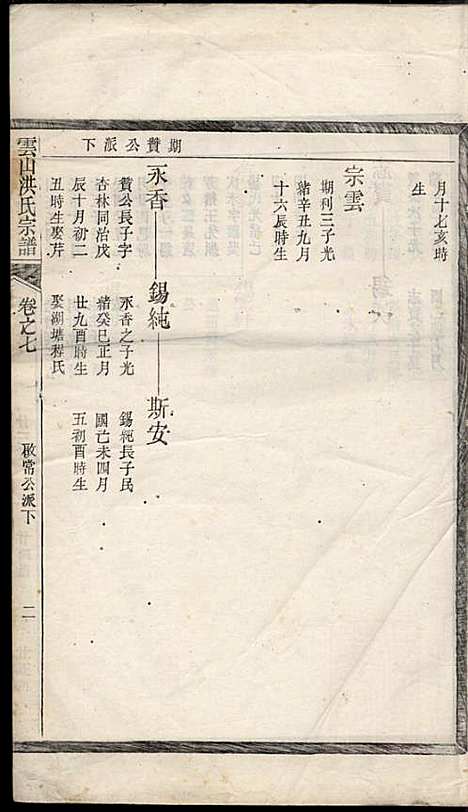 月十七亥時
生
宗雲
期利三子光
緒辛丑九月
十六辰時生
期贊公派下
永香 錫純 斯安
贊公長子字
杏林同治戊
辰十月初二
丑時生娶芹
永香之子光
緒癸巳正月
廿九酉時生
娶湖塘程氏
錫純長子民
國己未四月
五初酉時生
雲山洪氏宗譜
卷之七
啟常公派下
二